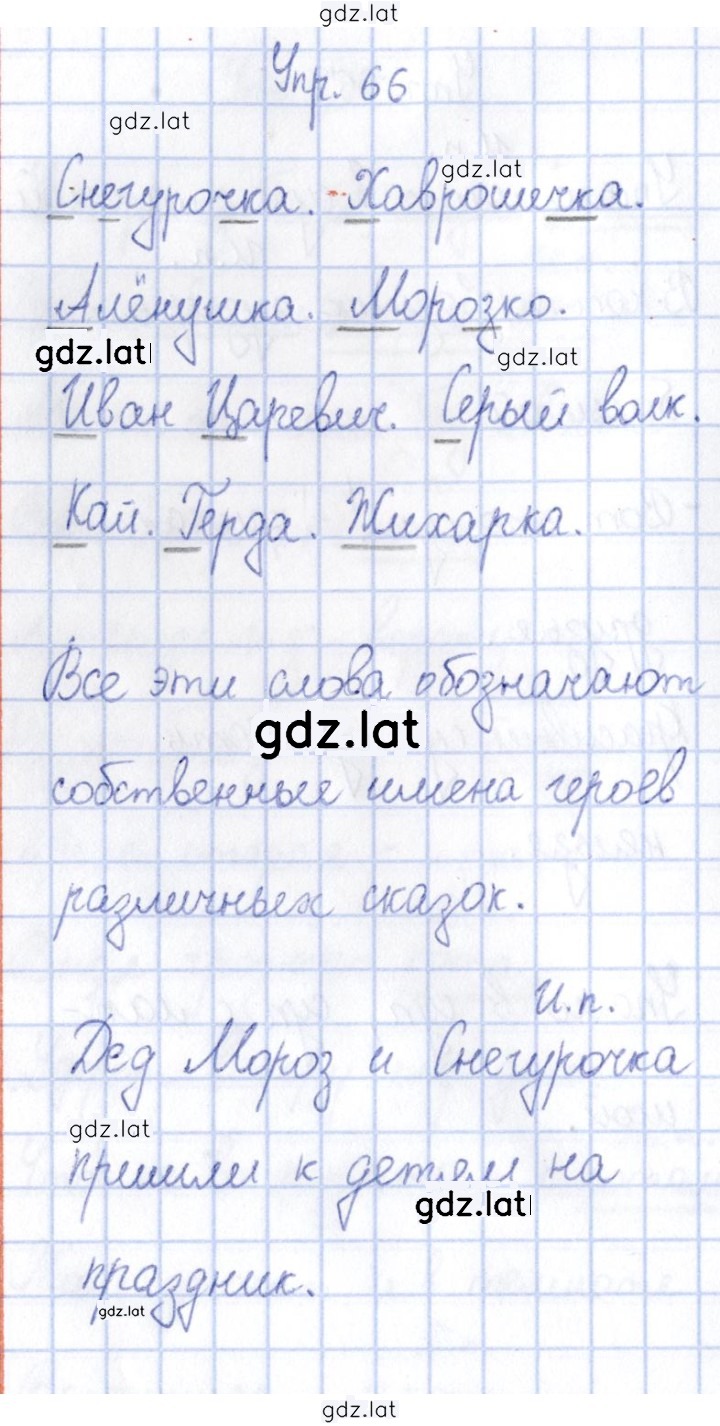 gdz.lat
Упр. 66
gdz.lat
gdz.lat
Снегурочка. Хаврошечка.
Алёнушка. Морозко.
gdz.lat
gdz.lat
Иван Царевич. Серый волк.
Кай. Герда. Жихарка.
Все эти слова обозначают
gdz.lat
собственные имена героев
различных сказок.
И.п.
Дед Мороз и Снегурочка
gdz.lat
пришли к детям на
gdz.lat
праздник.
gdz.lat
gdz.lat